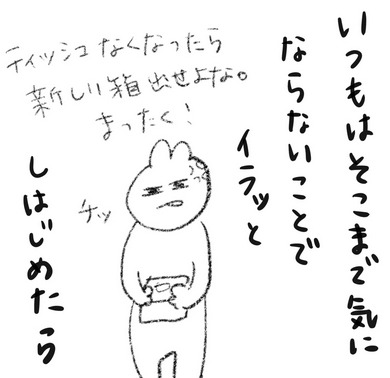 いつもはそこまで気に
ならないことで
イラッと
しはじめたら
ティッシュなくなったら
新しい箱出せよな。
まったく!
チッ